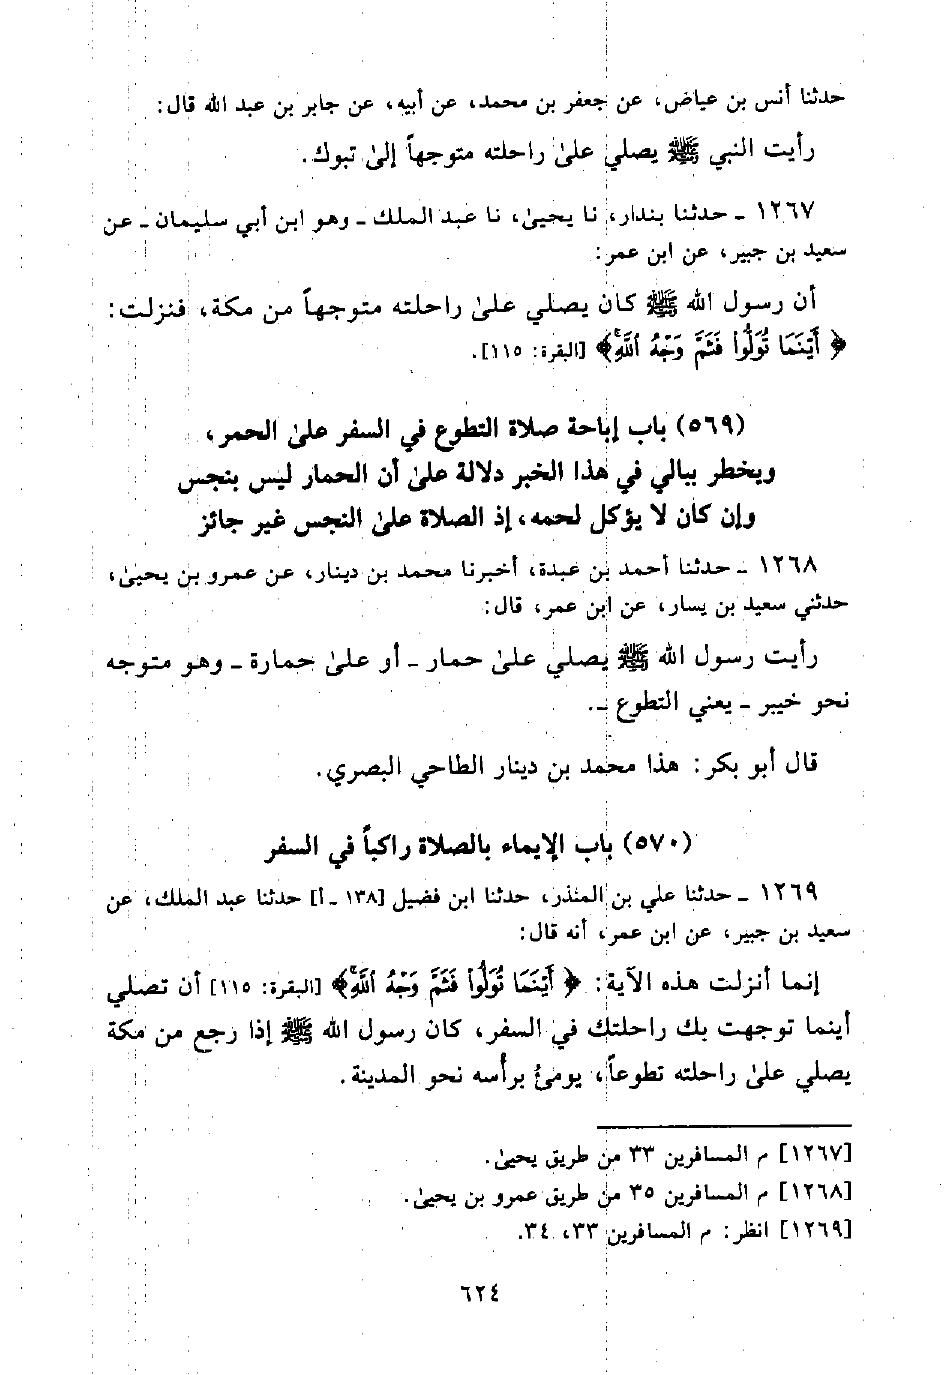 حدثنا أنس بن عياض، عن جعفر بن محمد، عن أبيه، عن جابر بن عبد الله قال:
رأيت النبي ﷺ يصلي علىٰ راحلته متوجهاً إلىٰ تبوك.
١٢٦٧ ـ حدثنا بندار، نا يحيىٰ، نا عبد الملك ـ وهو ابن أبي سليمان ـ عن
سعيد بن جبير، عن ابن عمر:
أن رسول الله ﷺ كان يصلي علىٰ راحلته متوجهاً من مكة، فنزلت:
﴿ أَيْنَمَا تُوَلُّواْ فَثَمَّ وَجْهُ ٱللَّهِۚ﴾ [البقرة: ١١٥].
(٥٦٩) باب إباحة صلاة التطوع في السفر علىٰ الحمر،
ويخطر ببالي في هذا الخبر دلالة علىٰ أن الحمار ليس بنجس
وإن كان لا يؤكل لحمه، إذ الصلاة علىٰ النجس غير جائز
١٢٦٨ ـ حدثنا أحمد بن عبدة، أخبرنا محمد بن دينار، عن عمرو بن يحيىٰ،
حدثني سعيد بن يسار، عن ابن عمر، قال:
رأيت رسول الله ﷺ يصلي علىٰ حمار ـ أو علىٰ حمارة ـ وهو متوجه
نحو خيبر ـ يعني التطوع ـ.
قال أبو بكر: هذا محمد بن دينار الطاحي البصري.
(٥٧٠) باب الإيماء بالصلاة راكباً في السفر
١٢٦٩ ـ حدثنا علي بن المنذر، حدثنا ابن فضيل [١٣٨ ـ أ] حدثنا عبد الملك، عن
سعيد بن جبير، عن ابن عمر، أنه قال:
إنما أنزلت هذه الآية: ﴿ أَيْنَمَا تُوَلُّواْ فَثَمَّ وَجْهُ ٱللَّهِۚ﴾ [البقرة: ١١٥] أن تصلي
أينما توجهت بك راحلتك في السفر، كان رسول الله ﷺ إذا رجع من مكة
يصلي علىٰ راحلته تطوعاً، يومئ برأسه نحو المدينة.
[١٢٦٧] م المسافرين ٣٣ من طريق يحيىٰ.
[١٢٦٨] م المسافرين ٣٥ من طريق عمرو بن يحيىٰ.
[١٢٦٩] انظر: م المسافرين ٣٣، ٣٤.
٦٢٤